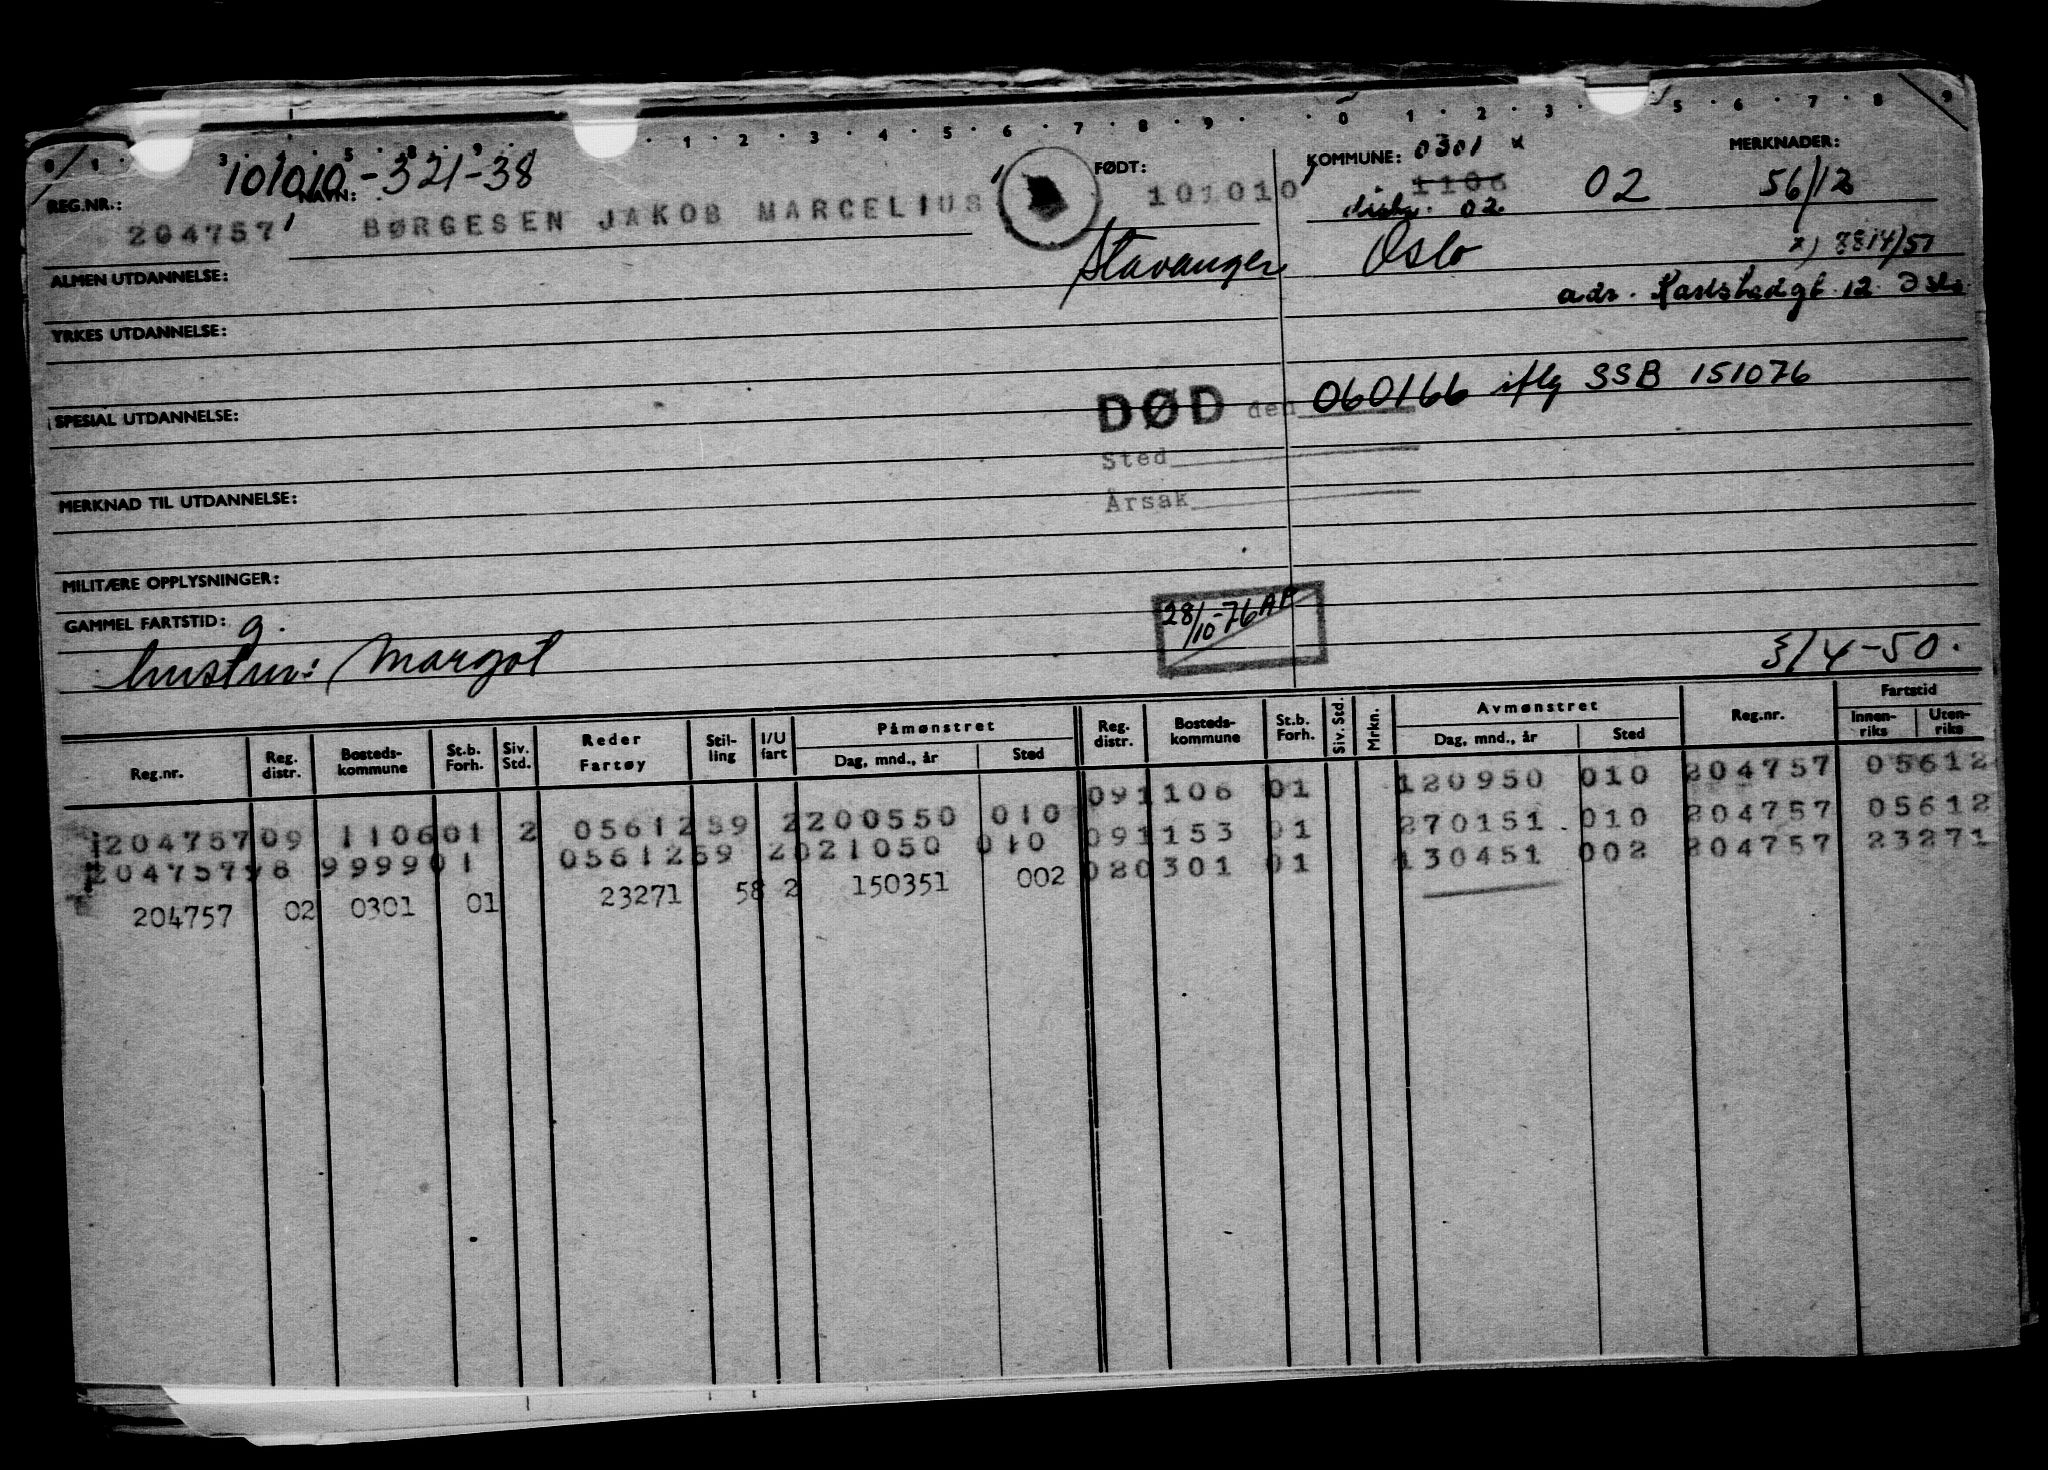 0 1 3 5 8 9 1 2 3 4 5 6 7 8 9 0 1 2 3 5 6 7 8 9
101010-321-38
REG.NR.: NAVN: FØDT: KOMMUNE: 0301 x MERKNADER:
204757 BØRGESEN JAKOB MARCELIUS 101010 1106 02 56/12
distr. 02
ALMEN UTDANNELSE: Stavanger Oslo x) 8814/51
adr. Karlstadgt. 12 Oslo
YRKES UTDANNELSE:
SPESIAL UTDANNELSE: DØD den 060166 iflg SSB 151076
Sted
MERKNAD TIL UTDANNELSE: Årsak
MILITÆRE OPPLYSNINGER:
GAMMEL FARTSTID: g. 28/10-76 AF
hustru: Margot 3/4-50.
Reg.nr. Reg. distr. Bosteds-kommune St.b. Forh. Siv. Std. Reder Fartøy Stil-ling I/U fart Påmønstret Dag, mnd., år Sted Reg. distr. Bosteds-kommune St.b. Forh. Siv. Std. Mrkn. Avmønstret Dag, mnd., år Sted Reg.nr. Fartstid Innen-riks Uten-riks
091106 01 120950 010 204757 05612
204757 09 1106 01 2 05612 59 2 200550 010 091153 01 270151 010 204757 05612
204757 98 9999 01 05612 59 2 021050 010 020301 01 130451 002 204757 23271
204757 02 0301 01 23271 58 2 150351 002